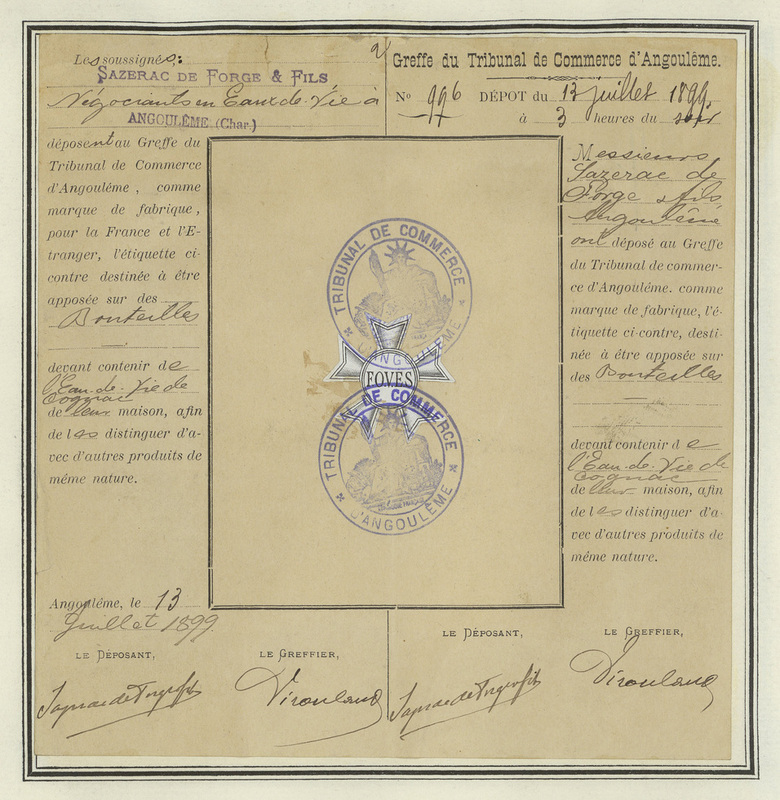 Les soussignés:
SAZERAC DE FORGE & FILS
Négociants en Eaux-de-Vie à
ANGOULÊME (Char.)
déposent au Greffe du
Tribunal de Commerce
d'Angoulême, comme
marque de fabrique,
pour la France et l'E-
tranger, l'étiquette ci-
contre destinée à être
apposée sur des
Bouteilles
devant contenir de
l'Eau-de-Vie de
Cognac
de leur maison, afin
de les distinguer d'a-
vec d'autres produits de
même nature.
Angoulême, le 13
Juillet 1899
LE DÉPOSANT,
LE GREFFIER,
Sazerac de Forge & fils
2
Greffe du Tribunal de Commerce d'Angoulême.
No 996 DÉPOT du 13 juillet 1899,
à 3 heures du soir
Messieurs
Sazerac de
Forge & fils
Angoulême
ont déposé au Greffe
du Tribunal de commer-
ce d'Angoulême. comme
marque de fabrique, l'é-
tiquette ci-contre, desti-
née à être apposée sur
des Bouteilles
devant contenir de
l'Eau-de-Vie de
Cognac
de leur maison, afin
de les distinguer d'a-
vec d'autres produits de
même nature.
LE DÉPOSANT,
LE GREFFIER,
Sazerac de Forge & fils
TRIBUNAL DE COMMERCE
D'ANGOULÊME
F.O.V.E.S
TRIBUNAL DE COMMERCE
D'ANGOULÊME